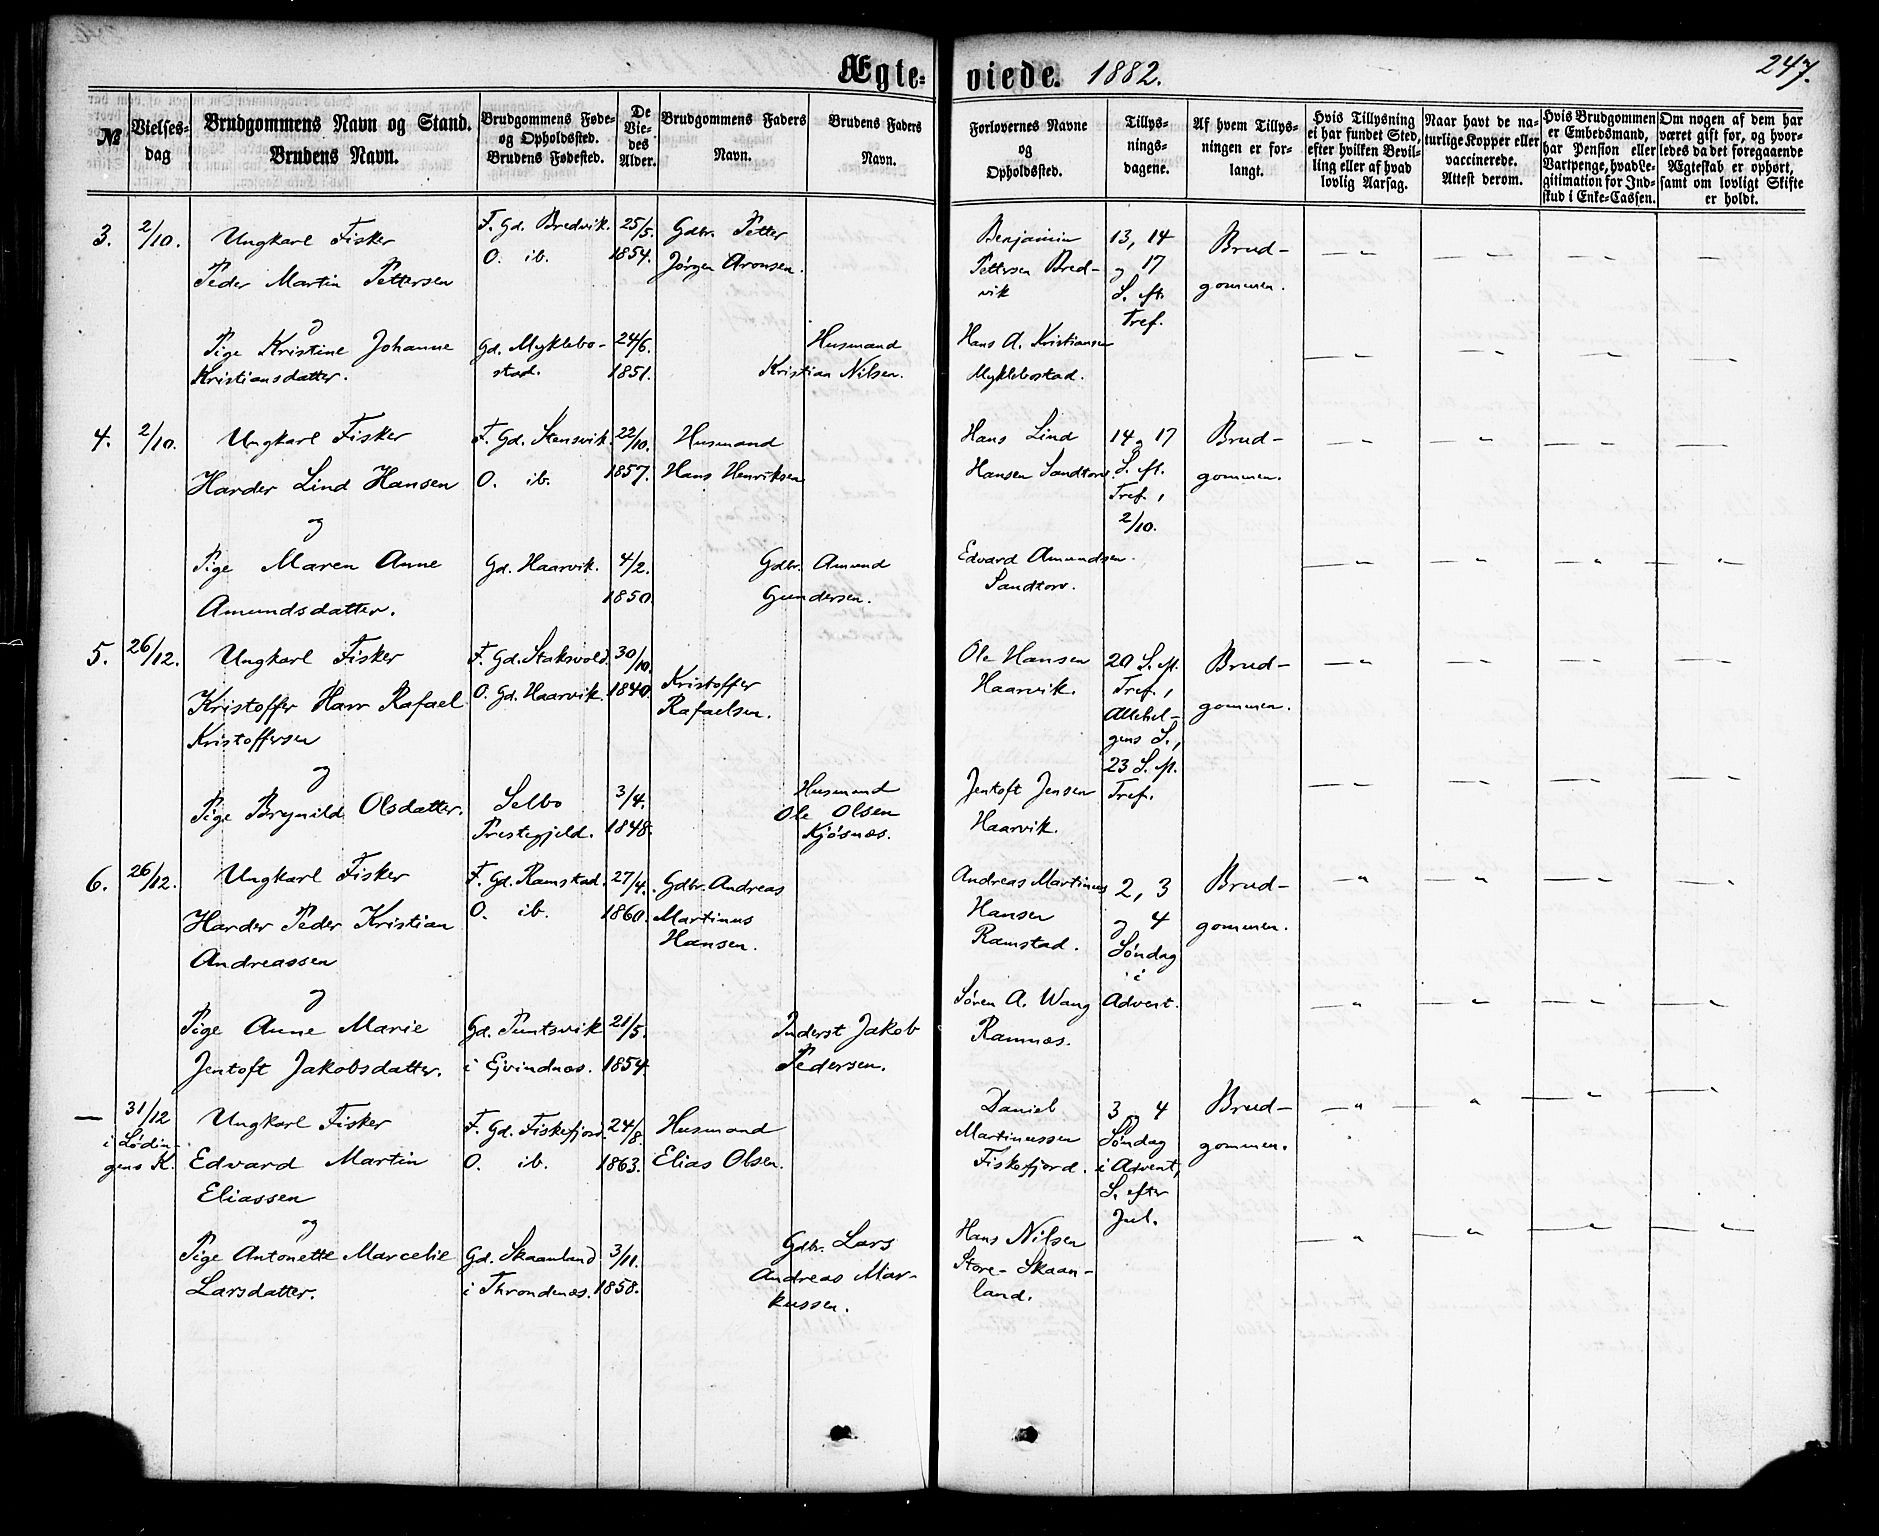 Ægte- viede. 1882. 247.
№
Vielses-
dag
Brudgommens Navn og Stand.
Brudens Navn.
Brudgommens Føde-
og Opholdssted.
Brudens Fødested.
De
Vie-
des
Alder.
Brudgommens Faders
Navn.
Brudens Faders
Navn.
Forlovernes Navne
og
Opholdssted.
Tillys-
nings-
dagene.
Af hvem Tillys-
ningen er for-
langt.
Hvis Tillysning
ei har fundet Sted,
efter hvilken Bevil-
ling eller af hvad
lovlig Aarsag.
Naar havt de na-
turlige Kopper eller
vaccinerede.
Attest derom.
Hvis Brudgommen
er Embedsmand,
har Pension eller
Vartpenge, hvad Le-
gitimation for Ind-
skud i Enke-Cassen.
Om nogen af dem har
været gift for, og hvor-
ledes da det foregaaende
Ægteskab er ophørt,
samt om lovligt Skifte
er holdt.
3.
2/10.
Ungkarl Fisker
Peder Martin Pettersen
og
Pige Kristine Johanne
Kristiansdatter.
F. Gd. Bredvik.
O. ib.
Gd. Myklebo-
stad.
25/5.
1854.
24/6.
1851.
Gdbr. Petter
Jörgen Aronsen.
Husmand
Kristian Nilsen.
Benjamin
Pettersen Bred-
vik
Hans A. Kristiansen
Myklebostad.
13, 14
og 17
S. eft.
Tref.
Brud-
gommen.
4.
2/10.
Ungkarl Fisker
Harder Lind Hansen
og
Pige Maren Anne
Amundsdatter.
F. Gd. Stensvik.
O. ib.
Gd. Haarvik.
22/10.
1857.
4/2.
1850.
Husmand
Hans Henriksen
Gdbr. Amund
Gundersen.
Hans Lind
Hansen Sandtorv.
Edvard Amundsen.
Sandtorv.
14 og 17
S. eft.
Tref.,
2/10.
Brud-
gommen.
5.
26/12.
Ungkarl Fisker
Kristoffer Harr Rafael
Kristoffersen
og
Pige Brynild Olsdatter.
F. Gd. Staksvold.
O. Gd. Haarvik.
Selbo
Prestegjeld.
30/10.
1840.
3/4.
1848.
Kristoffer
Rafaelsen.
Husmand
Ole Olsen
Kjøsnæs.
Ole Hansen
Haarvik.
Jentoft Jensen
Haarvik.
20 S. eft.
Tref.,
Allehel-
gens S.,
23 S. eft.
Tref.
Brud-
gommen.
6.
26/12.
Ungkarl Fisker
Harder Peder Kristian
Andreassen
og
Pige Anne Marie
Jentoft Jakobsdatter.
F. Gd. Ramstad.
O. ib.
Gd. Puntsvik
i Ejvindnæs.
27/4.
1860.
21/5.
1854.
Gdbr. Andreas
Martinus
Hansen.
Inderst Jakob
Pedersen.
Andreas Martinus
Hansen
Ramstad.
Søren A. Wang
Ramnæs.
2, 3
og 4
Søndag
i
Advent.
Brud-
gommen.
—
31/12
i Lødin-
gens K.
Ungkarl Fisker
Edvard Martin
Eliassen
og
Pige Antonette Marcelie
Larsdatter.
F. Gd. Fiskefjord.
O. ib.
Gd. Skaanland
i Throndenæs.
24/8.
1863.
3/11.
1858.
Husmand
Elias Olsen.
Gdbr. Lars
Andreas Mar-
kussen.
Daniel
Martinussen
Fiskefjord.
Hans Nilsen
Store-Skaan-
land.
3 og 4
Søndag
i Advent,
S. efter
Jul.
Brud-
gommen.